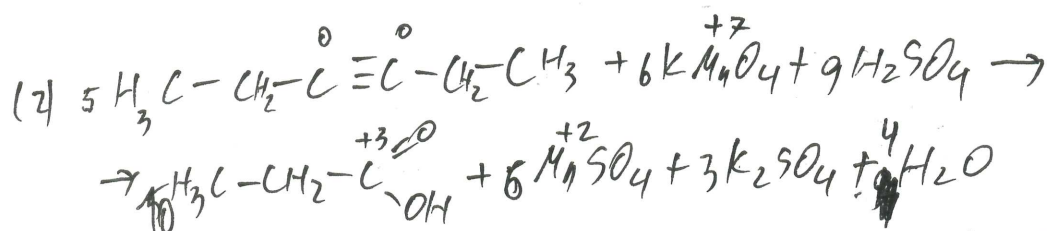 (2) 5 H₃C-CH₂-C⁰≡C⁰-CH₂-CH₃ + 6KMn⁺⁷O₄ + 9H₂SO₄ →
→ 10H₃C-CH₂-C⁺³(=O)OH + 6Mn⁺²SO₄ + 3K₂SO₄ + 4H₂O